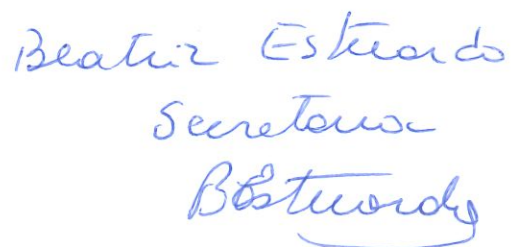 Beatriz Estuardo
Secretaria
BEstuardo